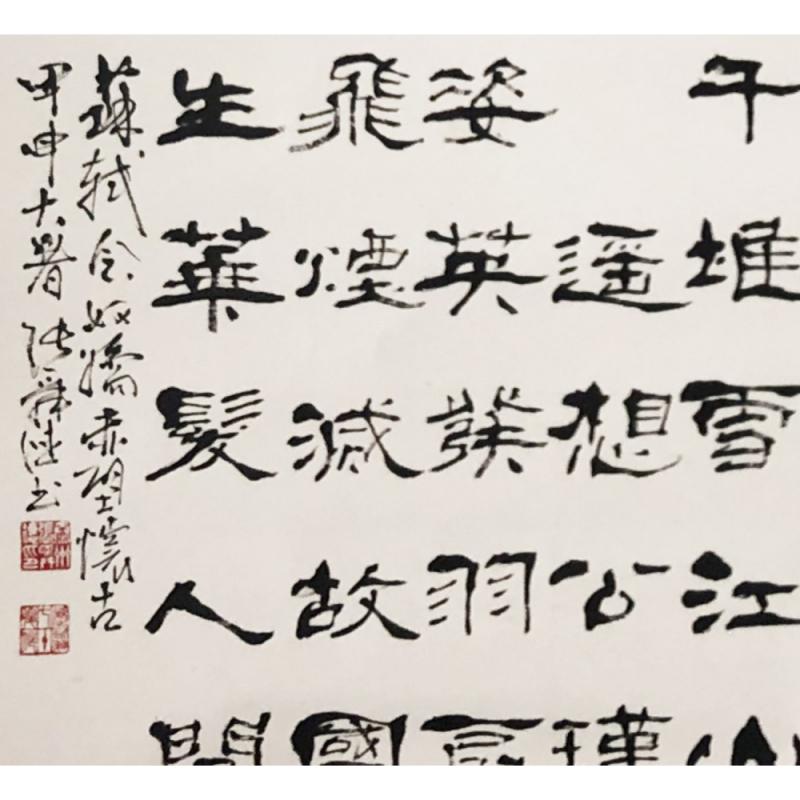 千堆雪江山
遥想公瑾
姿英發羽扇
飛煙滅故國
生華髮人間
蘇軾念奴嬌赤壁懷古
甲申大暑張舜书